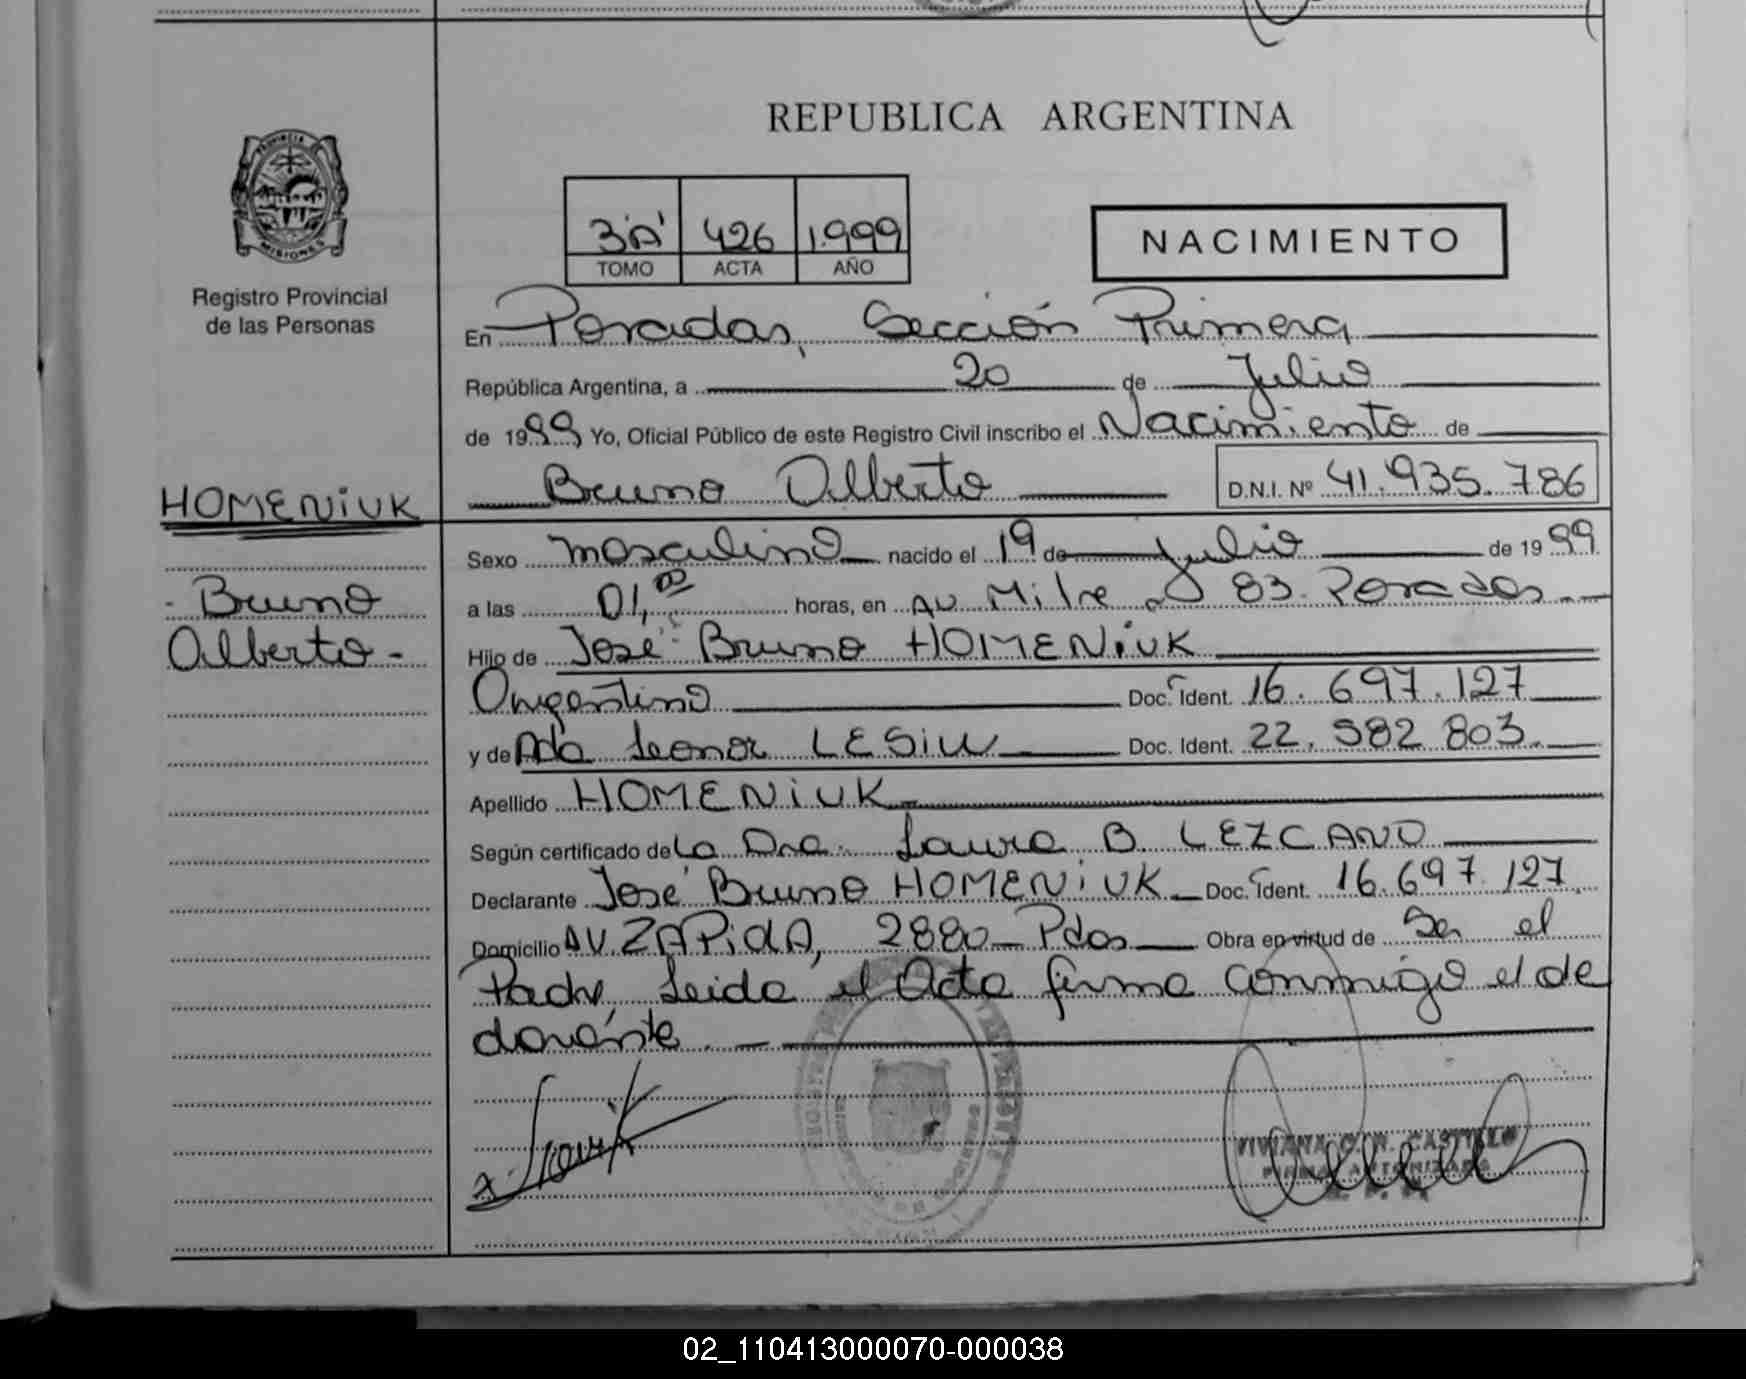 REPUBLICA ARGENTINA
PROVINCIA DE
MISIONES
Registro Provincial
de las Personas
3'A' 426 1.999
TOMO ACTA AÑO
NACIMIENTO
En Posadas, Sección Primera
República Argentina, a 20 de Julio
de 1999 Yo, Oficial Público de este Registro Civil inscribo el Nacimiento de
Bruno Alberto D.N.I. Nº 41.935.786
HOMENiUK
Bruno
Alberto-
Sexo masculino nacido el 19 de julio de 1999
a las 01,00 horas, en AV Mitre 83 Posadas
Hijo de José Bruno HOMENiUK
Argentino Doc. Ident. 16.697.127
y de Ada Leonor LESiW Doc. Ident. 22.582 803.
Apellido HOMENiUK
Según certificado de La Dra. Laura B. LEZCANO
Declarante José Bruno HOMENiUK Doc. Ident. 16.697.127
Domicilio AV. ZAPiOLA, 2880 Pdas Obra en virtud de Ser el
Padre Leida el Acta firma conmigo el de
clarante.
VIVIANA CASTILLO
FIRMA AUTORIZADA
02_110413000070-000038